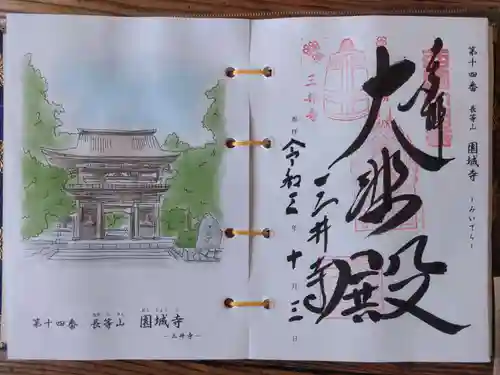 第十四番 長等山 園城寺
―三井寺―
第十四番 長等山 園城寺 ―みいでら―
大悲殿
三井寺
奉拝 令和三年十月三日
三井寺